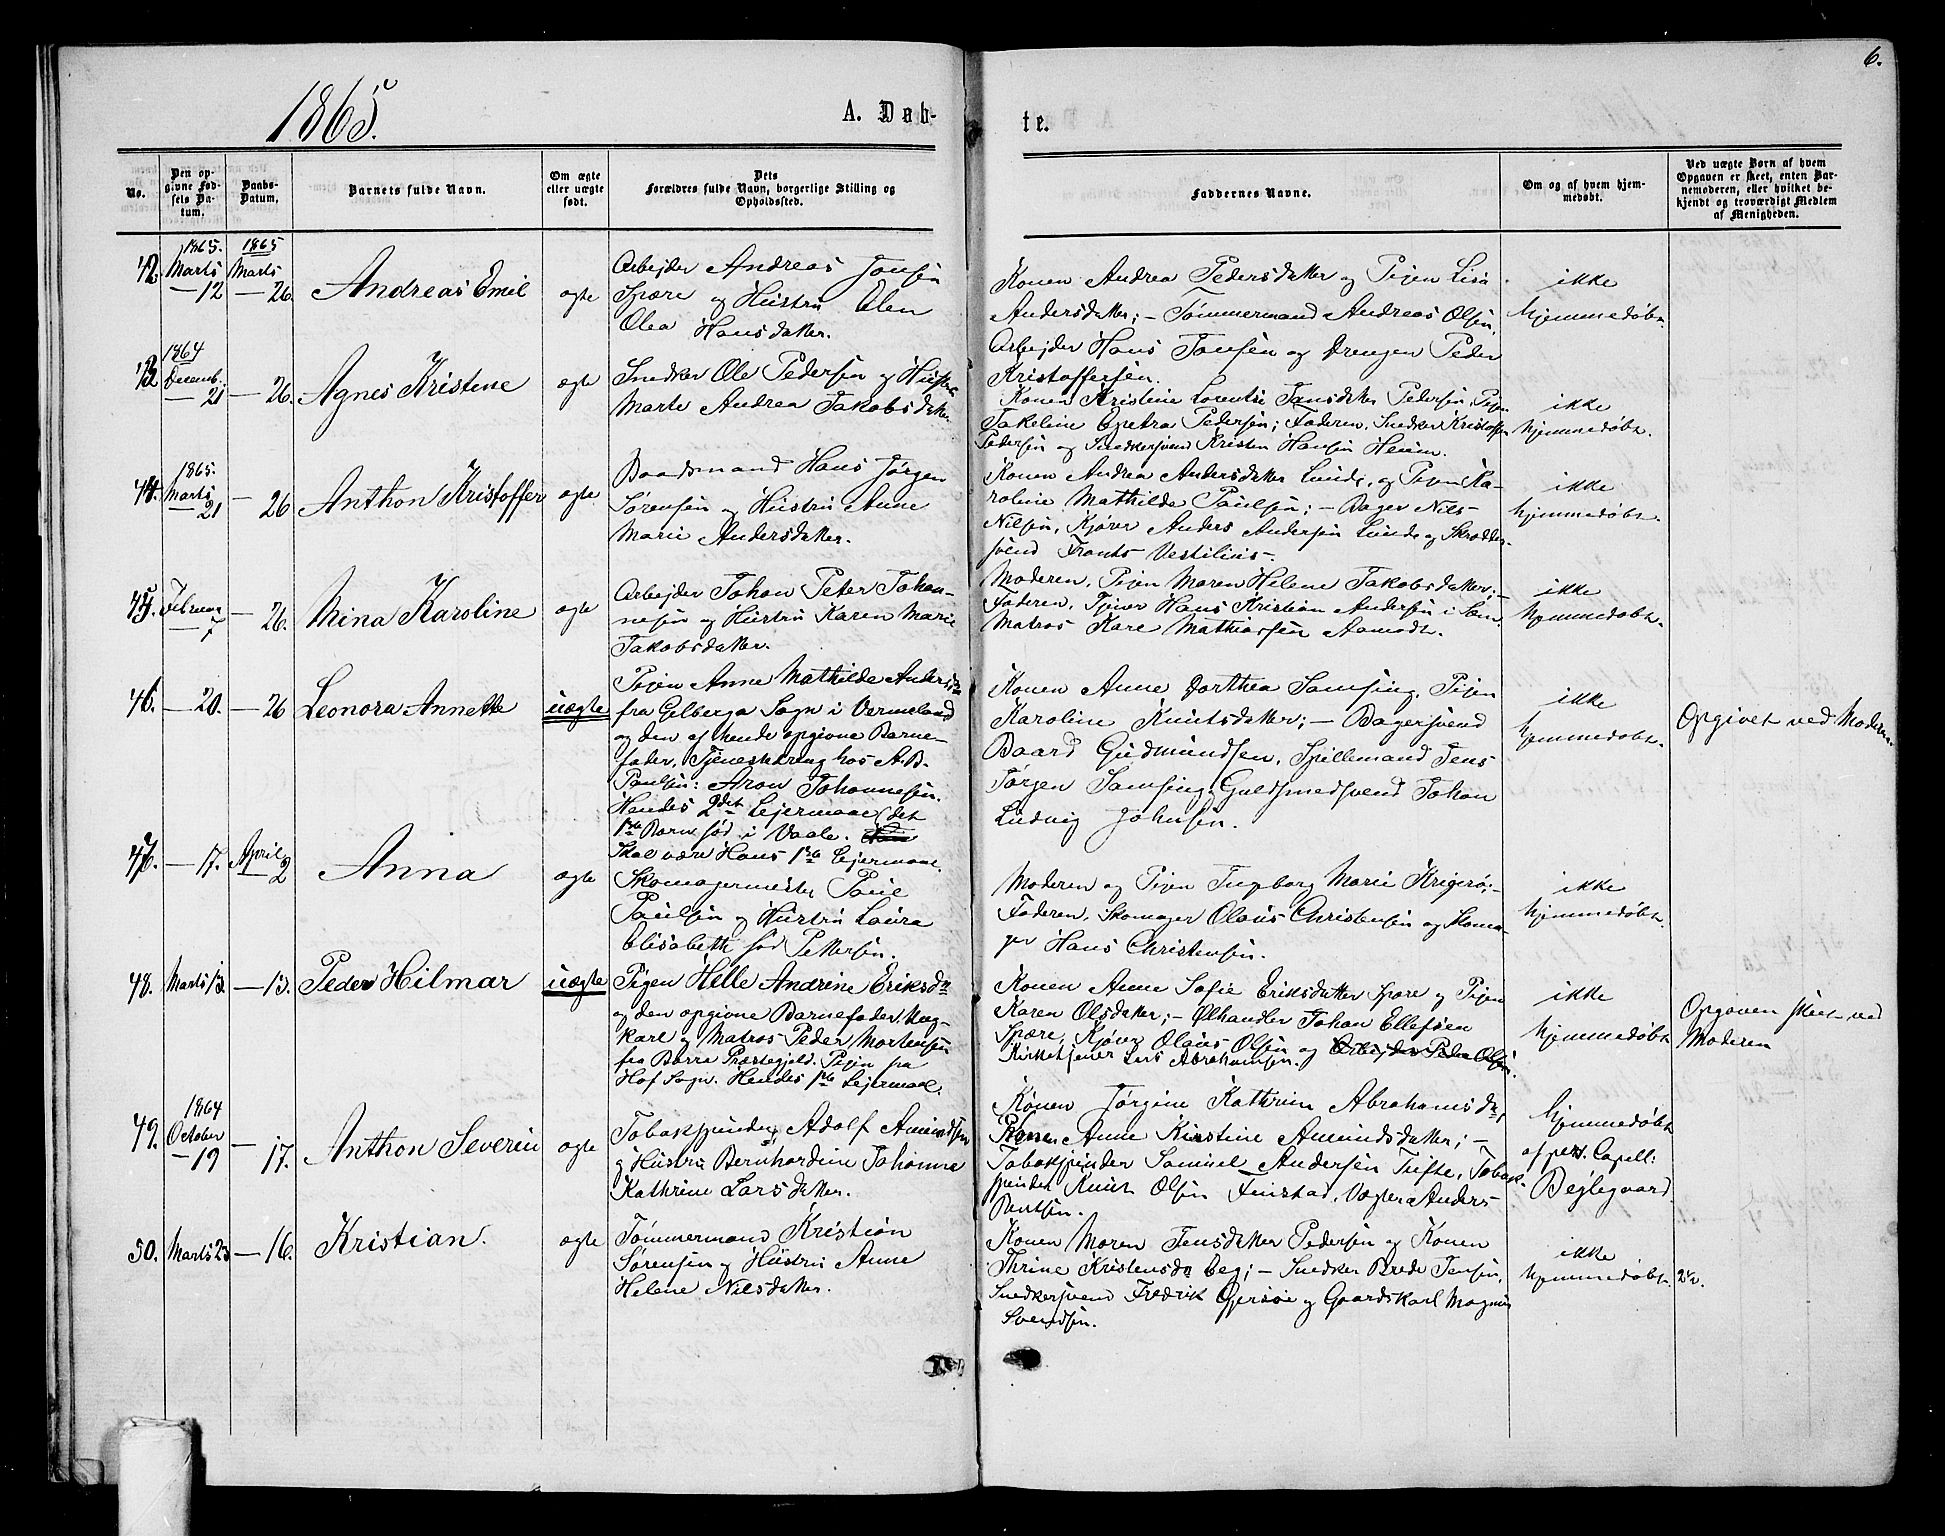 6.
1865.
A. Døb-
te.
No.
Den op-
givne Fød-
sels Da-
tum.
Daabs-
Datum.
Barnets fulde Navn.
Om ægte
eller uægte
født.
Dets
Forældres fulde Navn, borgerlige Stilling og
Opholdssted.
Faddernes Navne.
Om og af hvem hjem-
medøbt.
Ved uægte Børn af hvem
Opgaven er skeet, enten Bar-
nemoderen, eller hvilket be-
kjendt og troværdigt Medlem
af Menigheden.
42.
1865.
Marts
— 12
1865
Marts
— 26
Andreas Emil
ægte
Arbejder Andreas Jonsen
Spære og Hustru Elen
Olea Hansdatter.
Konen Andrea Pedersdatter og Pigen Lisa
Andersdatter; — Tømmermand Andreas Olsen,
Arbejder Hans Jonsen og Drengen Peder
Kristoffersen.
ikke
hjemmedøbt.
43.
1864
Decemb.
— 21
— 26.
Agnes Kristene
ægte
Snedker Ole Pedersen og Hustru
Marte Andrea Jakobsdatter
Konen Kristine Lorentse Jansdatter Pedersen, Pigen
Jakeline Petra Pedersen; Faderen, Snedker Kristoffer
Pedersen og Snedkersvend Kristen Hansen Heum.
ikke
hjemmedøbt.
44.
1865.
Marts
— 21
— 26
Anthon Kristoffer
ægte
Baadsmand Hans Jørgen
Sørensen og Hustru Anne
Marie Andersdatter.
Konen Andrea Andersdatter Lunde, og Pigen Ka-
roline Mathilde Paulsen; — Bager Nils
Nilsen, Kjører Anders Andersen Lunde og Skrædder-
svend Frants Vestilius.
ikke
hjemmedøbt.
45.
Februar
— 7
— 26.
Mina Karoline
ægte
Arbejder Johan Peter Johan-
nesen og Hustru Karen Marie
Jakobsdatter.
Moderen, Pigen Maren Helene Jakobsdatter; —
Faderen, Tjener Hans Kristian Andersen i Sem
Matros Kare Mathiassen Aamodt.
ikke
hjemmedøbt.
46.
— 20.
— 26
Leonora Annette
uægte
Pigen Anne Mathilde Andersdatter
fra Gelberga Sogn i Vermeland
og den af hende opgivne Barne-
fader, Tjenestedreng hos A. B.
Paulsen: Aron Johannesen.
Hendes 2det Lejermaal (det
1ste Barn fød i Vaale.
Skal være Hans 1ste Lejermaal.
Konen Anne Dorthea Samsing, Pigen
Karoline Knutsdatter; — Bagersvend
Baard Gudmundsen, Spillemand Jens
Jørgen Samsing, Guldsmedsvend Johan
Ludvig Johnsen.
ikke
hjemmedøbt.
Opgivet ved Moderen
47.
— 17.
April
— 2
Anna
ægte
Skomagermester Paul
Paulsen og Hustru Laura
Elisabeth fød Pettersen.
Moderen og Pigen Ingborg Marie Krigerø; —
Faderen, Skomager Olaus Christensen og Skoma-
ger Hans Christensen.
ikke
hjemmedøbt.
48.
Marts 13
— 13.
Peder Hilmar
uægte
Pigen Helle Andrine Eriksdtr
og den opgivne Barnefader, Ung-
karl og Matros Peder Mortensen
fra Borre Præstegjeld. Pigen fra
Hof Sogn. Hendes 1ste Lejermaal.
Konen Anne Sofie Eriksdatter Spære og Pigen
Karen Olsdatter; — Ølhandler Johan Ellefsen
Spære, Kjører Olaus Olsen og Arbejder Peder Olsen.
Kirketjener Lars Abrahamsen.
ikke
hjemmedøbt
Opgaven skeet ved
Moderen
49.
1864
October
— 19
— 17.
Anthon Severin
ægte
Tobakspinder Adolf Amundsen
og Hustru Bernhardine Johanna
Kathrine Larsdatter.
Konen Jørgine Kathrine Abrahamsdtr,
Konen Anne Kirstine Amundsdatter; —
Tobakspinder Samuel Andersen Tufte, Tobak-
spinder Knut Olsen Finstad, Vægter Anders
Bentsen.
hjemmedøbt
af pers. Capell:
Bejlegaard
50.
Marts 23
— 16.
Kristian.
ægte
Tømmermand Kristian
Sørensen og Hustru Anne
Helene Nilsdatter.
Konen Maren Jensdatter Pedersen og Konen
Thrine Kristensdtr Beg; — Snedker Brede Jensen,
Snedkersvend Fredrik Gjersøe og Gaardskarl Magnus
Svendsen.
ikke
hjemmedøbt